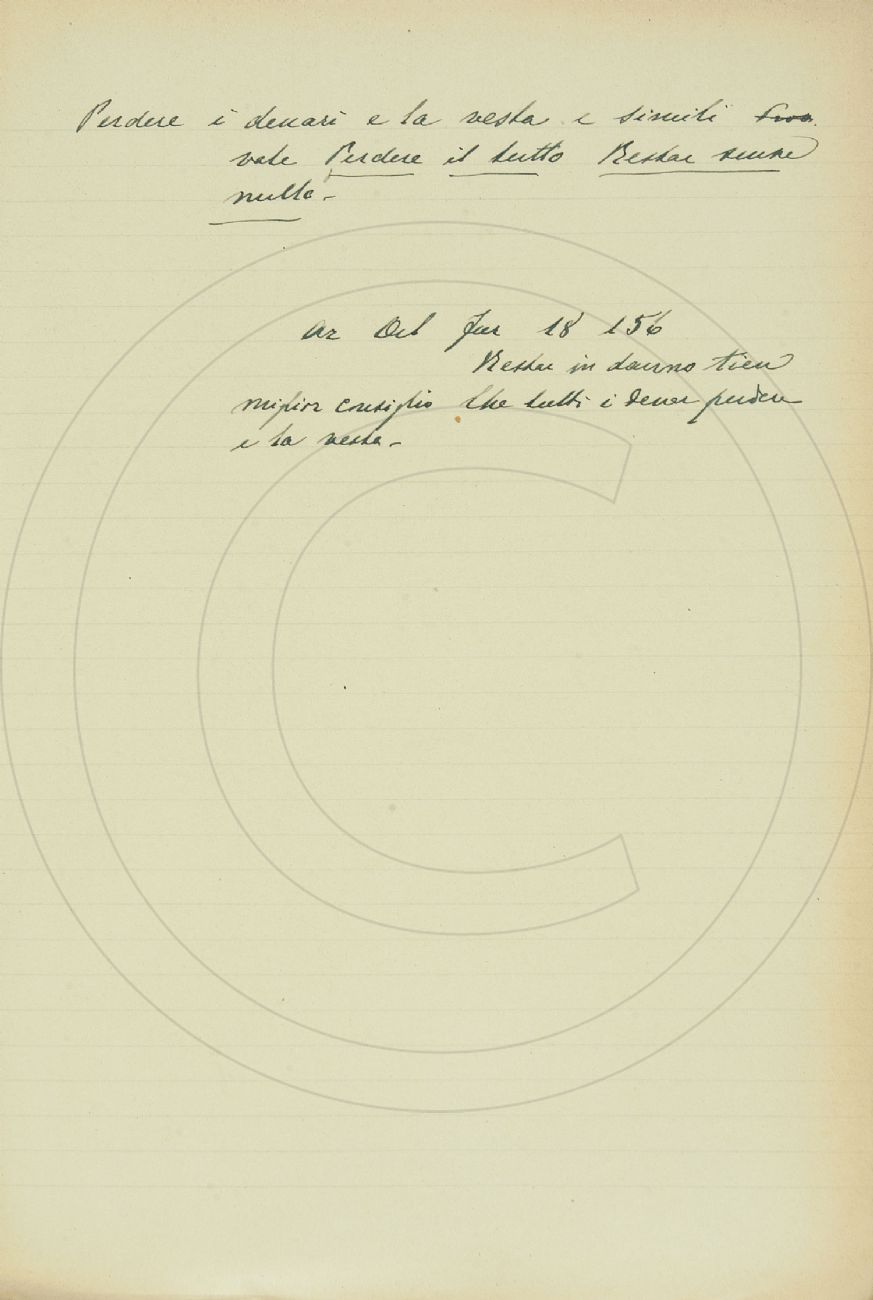 Perdere i denari e la vesta e simili
vale Perdere il tutto Restar senza
nulla -
Ar Orl fur 18 156
Restar in danno tien
miglior consiglio Che tutti i denar perdere
e la vesta -